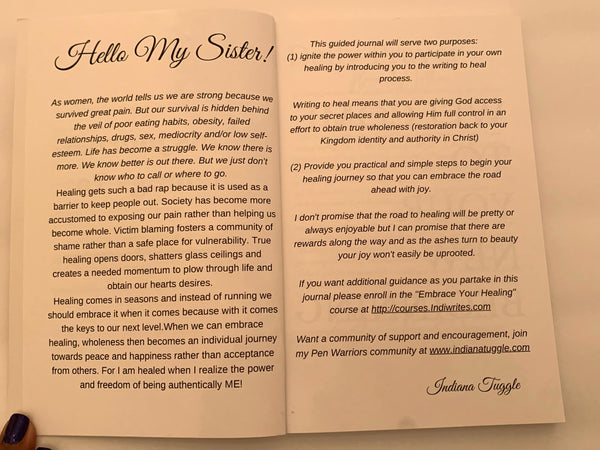 Hello My Sister!
As women, the world tells us we are strong because we
survived great pain. But our survival is hidden behind
the veil of poor eating habits, obesity, failed
relationships, drugs, sex, mediocrity and/or low self-
esteem. Life has become a struggle. We know there is
more. We know better is out there. But we just don't
know who to call or where to go.
Healing gets such a bad rap because it is used as a
barrier to keep people out. Society has become more
accustomed to exposing our pain rather than helping us
become whole. Victim blaming fosters a community of
shame rather than a safe place for vulnerability. True
healing opens doors, shatters glass ceilings and
creates a needed momentum to plow through life and
obtain our hearts desires.
Healing comes in seasons and instead of running we
should embrace it when it comes because with it comes
the keys to our next level.When we can embrace
healing, wholeness then becomes an individual journey
towards peace and happiness rather than acceptance
from others. For I am healed when I realize the power
and freedom of being authentically ME!
This guided journal will serve two purposes:
(1) ignite the power within you to participate in your own
healing by introducing you to the writing to heal
process.
Writing to heal means that you are giving God access
to your secret places and allowing Him full control in an
effort to obtain true wholeness (restoration back to your
Kingdom identity and authority in Christ)
(2) Provide you practical and simple steps to begin your
healing journey so that you can embrace the road
ahead with joy.
I don't promise that the road to healing will be pretty or
always enjoyable but I can promise that there are
rewards along the way and as the ashes turn to beauty
your joy won't easily be uprooted.
If you want additional guidance as you partake in this
journal please enroll in the "Embrace Your Healing"
course at http://courses.Indiwrites.com
Want a community of support and encouragement, join
my Pen Warriors community at www.indianatuggle.com
Indiana Tuggle